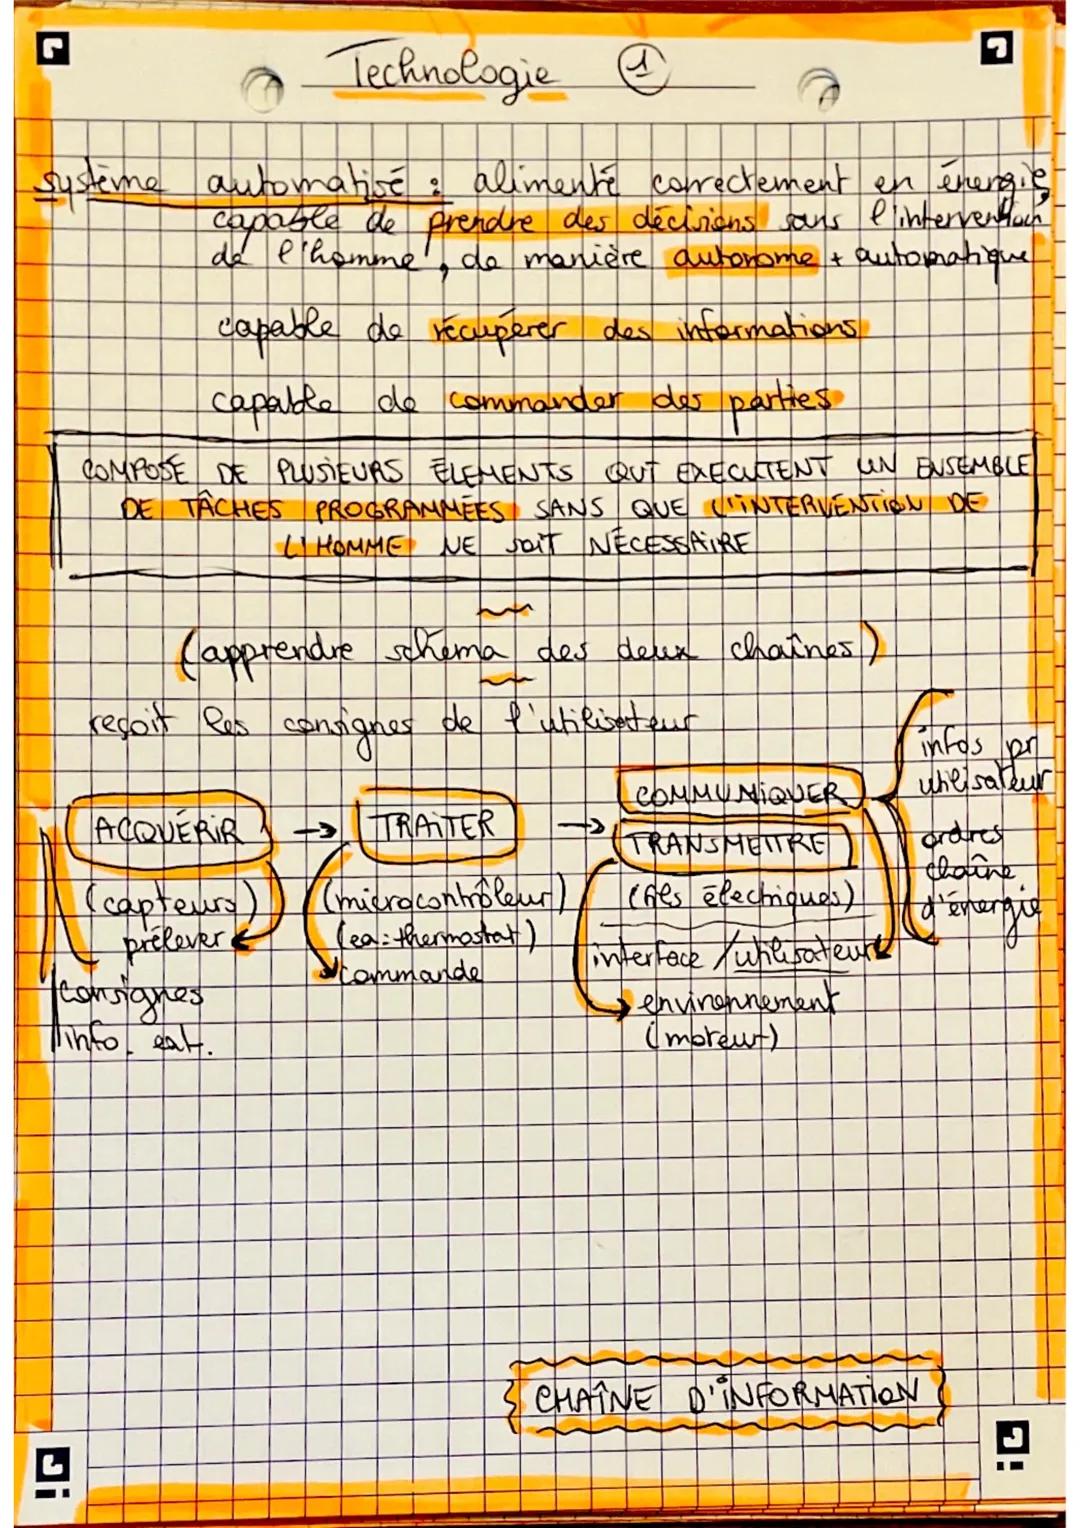 Technologie 1
système automatisé : alimenté correctement en énergie,
capable de prendre des décisions sans l'intervention
de l'homme, de manière autonome + automatique
capable de récupérer des informations
capable de commander des parties
COMPOSÉ DE PLUSIEURS ÉLEMENTS QUI EXECUTENT UN ENSEMBLE
DE TÂCHES PROGRAMMÉES SANS QUE L'INTERVENTION DE
L'HOMME NE SOIT NÉCESSAIRE
(apprendre schéma des deux chaînes)
reçoit les consignes de l'utilisateur
ACQUÉRIR → TRAITER → COMMUNIQUER
TRANSMETTRE
(capteurs)
prélever
consignes
info. ext.
(microcontrôleur)
(ex: thermostat)
commande
(fils électriques)
interface / utilisateur
environnement
(moteur)
infos pr
utilisateur
ordres
chaîne
d'énergie
CHAÎNE D'INFORMATION